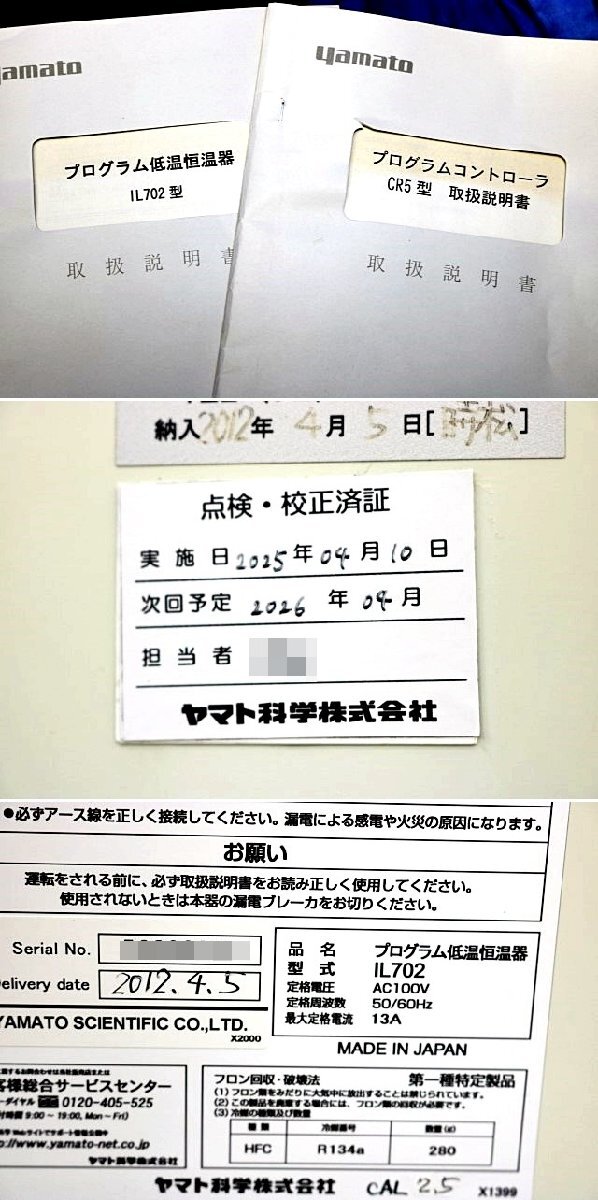 yamato
プログラム低温恒温器
IL702 型
取 扱 説 明
yamato
プログラムコントローラ
CR5 型 取扱説明書
取 扱 説 明 書
納入2012年 4月 5日[ ]
点検・校正済証
実 施 日 2025 年 04 月 10 日
次回予定 2026 年 04 月
担 当 者
ヤマト科学株式会社
●必ずアース線を正しく接続してください。漏電による感電や火災の原因になります。
お願い
運転をされる前に、必ず取扱説明書をお読み正しく使用してください。
使用されないときは本器の漏電ブレーカをお切りください。
Serial No.
elivery date 2012.4.5
YAMATO SCIENTIFIC CO.,LTD.
X2000
品 名 プログラム低温恒温器
型 式 IL702
定格電圧 AC100V
定格周波数 50/60Hz
最大定格電流 13A
MADE IN JAPAN
関するお問合わせは当社販売店または
客様総合サービスセンター
ーダイヤル 0120-405-525
付時間 9:00～19:00, Mon～Fri)
Webサイトでサポート情報公開中
http://www.yamato-net.co.jp
ヤマト科学株式会社
フロン回収・破壊法 第一種特定製品
(1) フロン類をみだりに大気中に放出することは禁じられています。
(2) この製品を廃棄する場合には、フロン類の回収が必要です。
(3) 冷媒の種類及び数量
種 類 冷媒番号 数量(g)
HFC R134a 280
ヤマト科学株式会社 CAL 2.5 X1399